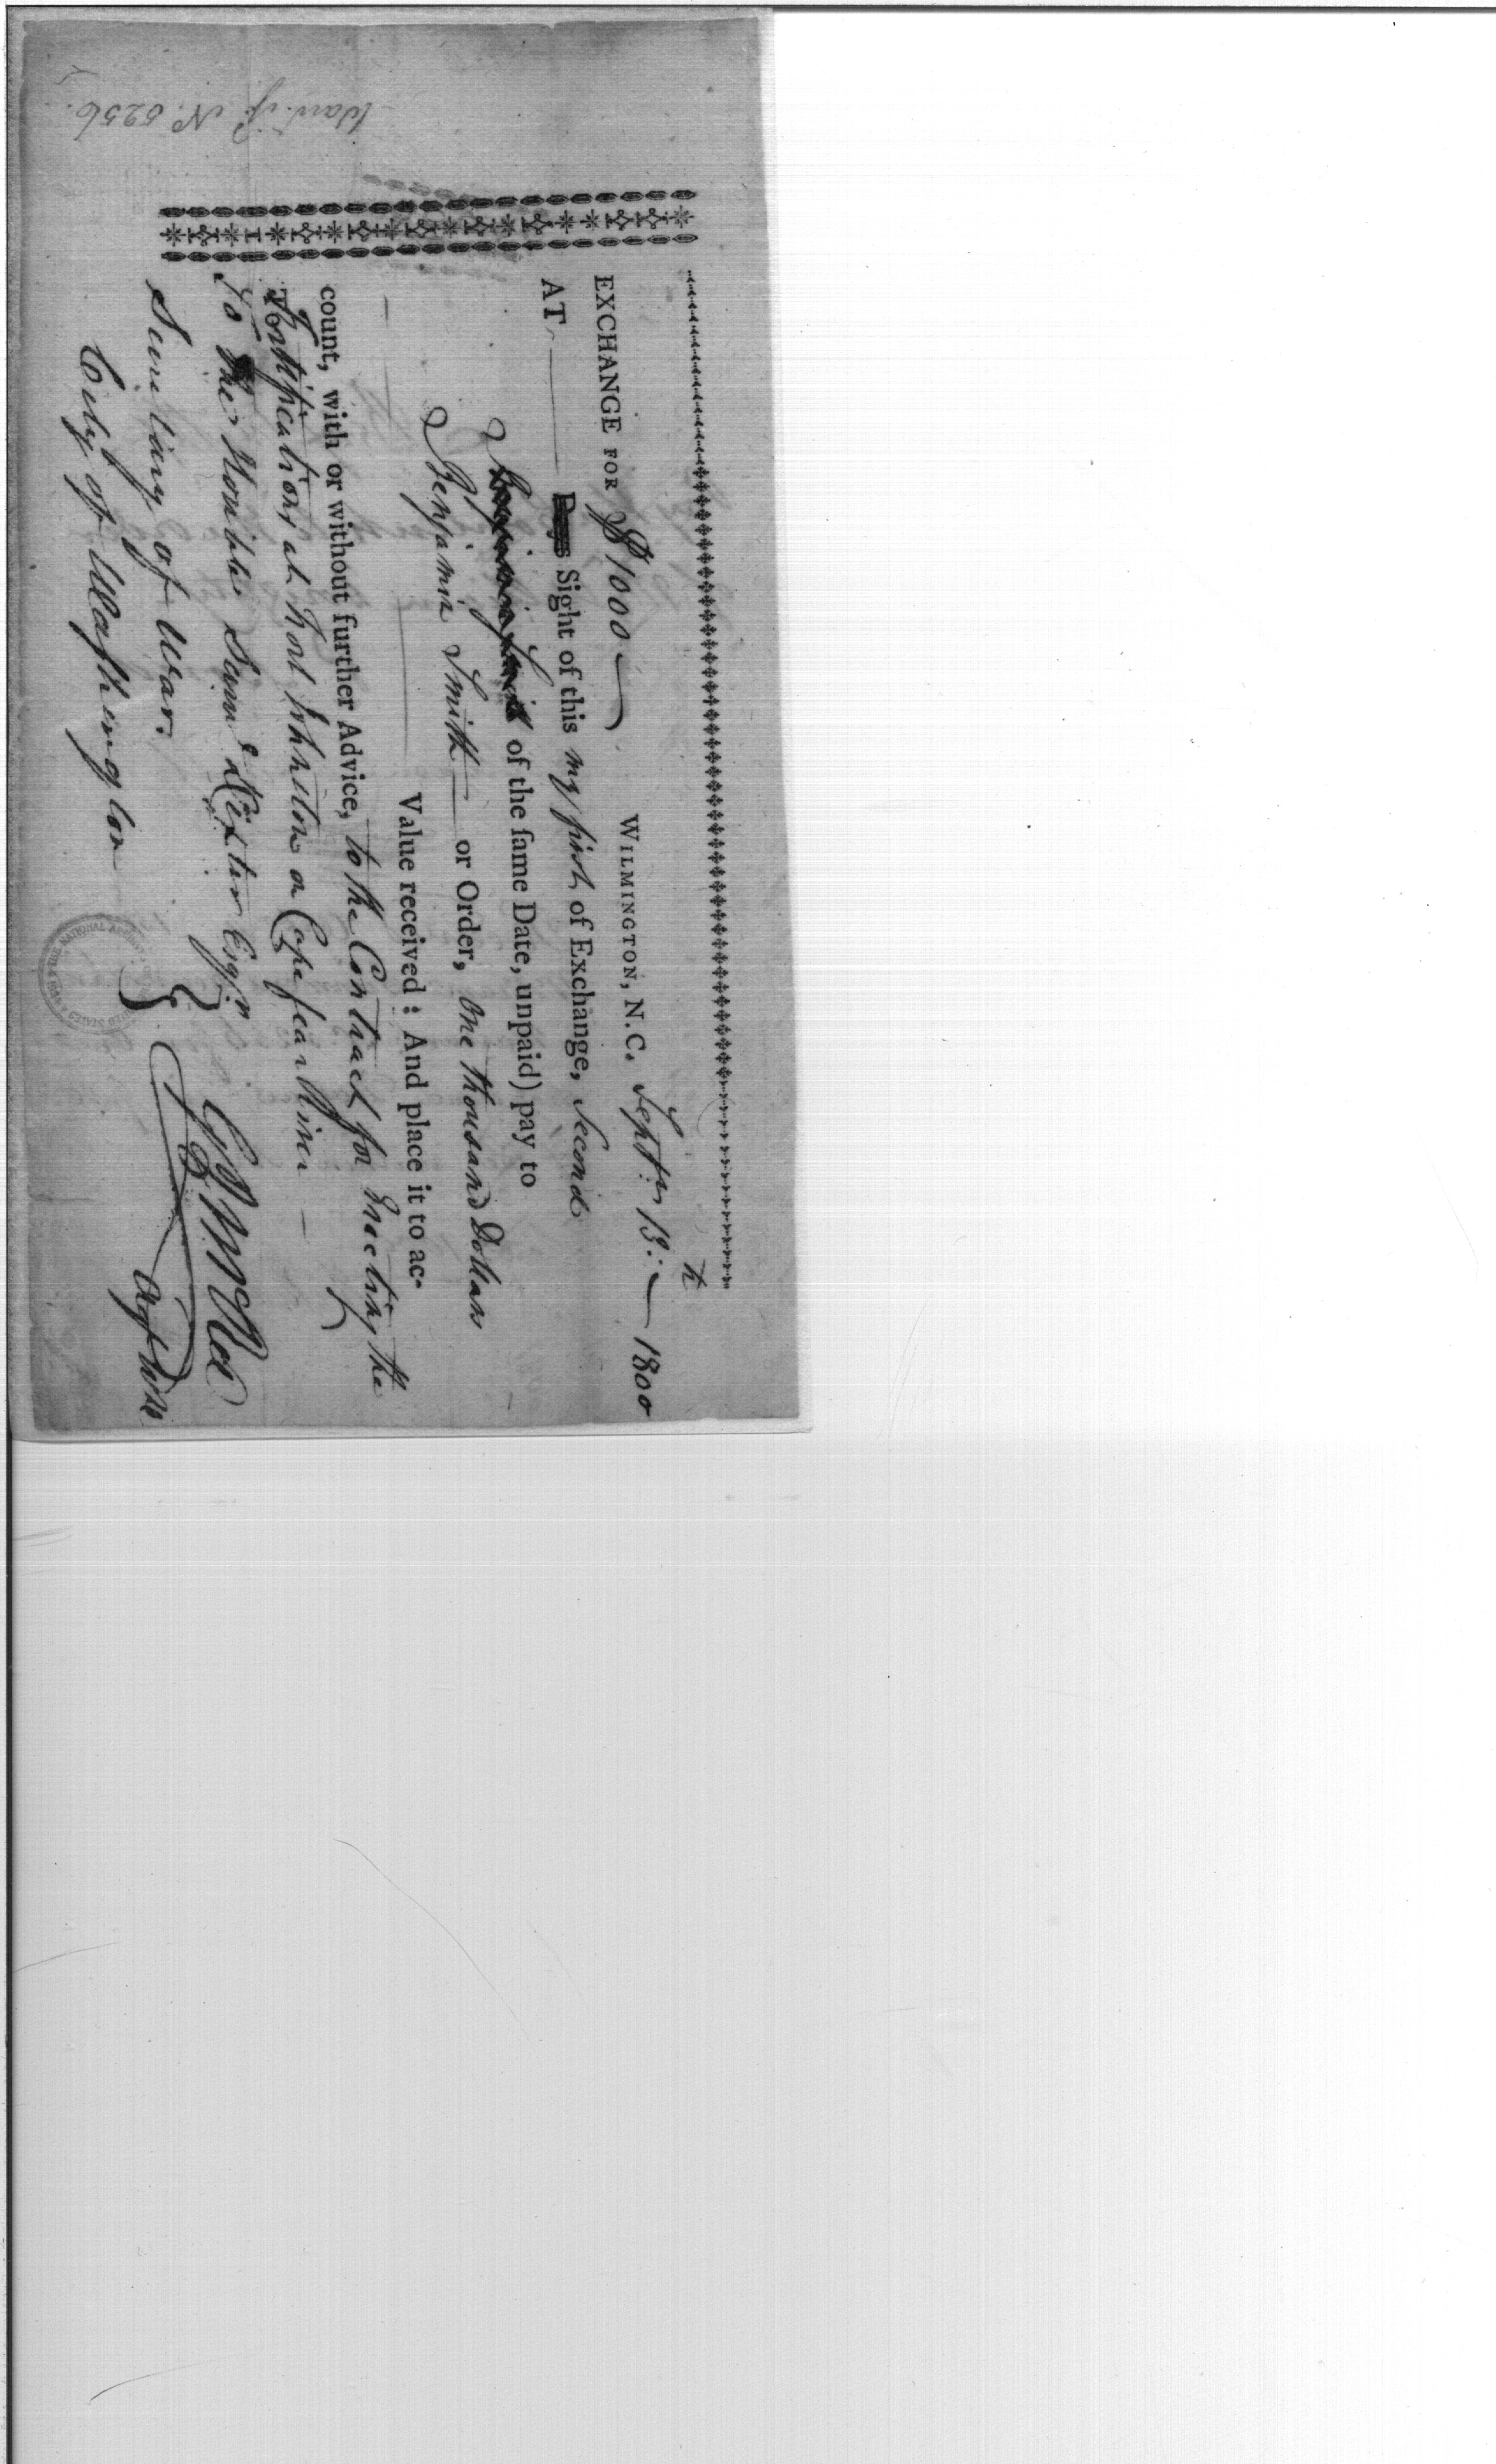 EXCHANGE FOR $1000 WILMINGTON, N.C. Septr. 13th 1800
AT Days Sight of this my first of Exchange, Second
of the same Date, unpaid) pay to
Benjamin Smith or Order, One thousand Dollars
Value received : And place it to ac-
count, with or without further Advice, to the Contract for Erecting the
Fortifications at Fort Johnston on Cape fear River
To The Honble Saml Dexter Esqr
Secretary of War.
City of Washington
G J McRee
Agt W D
N° 5256.
THE NATIONAL ARCHIVES